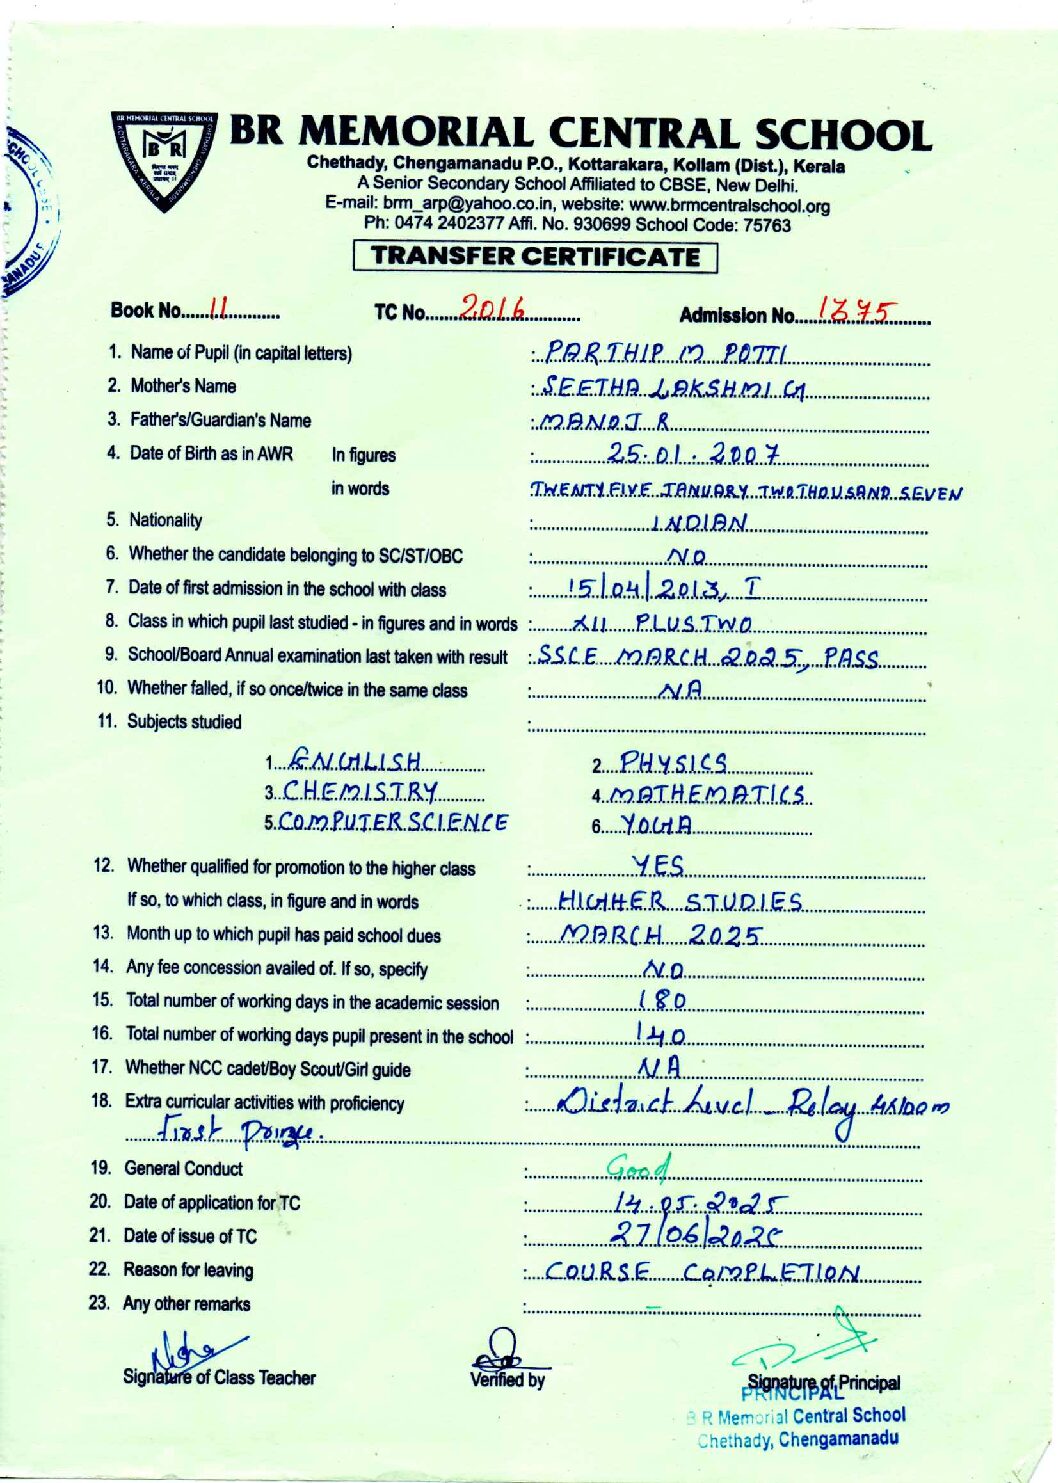 BR MEMORIAL CENTRAL SCHOOL
B R
BR MEMORIAL CENTRAL SCHOOL
Chethady, Chengamanadu P.O., Kottarakara, Kollam (Dist.), Kerala
A Senior Secondary School Affiliated to CBSE, New Delhi.
E-mail: brm_arp@yahoo.co.in, website: www.brmcentralschool.org
Ph: 0474 2402377 Affi. No. 930699 School Code: 75763
TRANSFER CERTIFICATE
Book No......11............ TC No.......2016............ Admission No....1375........
1. Name of Pupil (in capital letters) : PARTHIP M POTTI
2. Mother's Name : SEETHA LAKSHMI G
3. Father's/Guardian's Name : MANOJ R
4. Date of Birth as in AWR In figures : 25.01.2007
in words TWENTY FIVE JANUARY TWO THOUSAND SEVEN
5. Nationality : INDIAN
6. Whether the candidate belonging to SC/ST/OBC : NO
7. Date of first admission in the school with class : 15/04/2013, I
8. Class in which pupil last studied - in figures and in words : XII PLUS TWO
9. School/Board Annual examination last taken with result : SSCE MARCH 2025, PASS
10. Whether falled, if so once/twice in the same class : NA
11. Subjects studied :
1. ENGLISH 2. PHYSICS
3. CHEMISTRY 4. MATHEMATICS
5. COMPUTER SCIENCE 6. YOGA
12. Whether qualified for promotion to the higher class : YES
If so, to which class, in figure and in words : HIGHER STUDIES
13. Month up to which pupil has paid school dues : MARCH 2025
14. Any fee concession availed of. If so, specify : NO
15. Total number of working days in the academic session : 180
16. Total number of working days pupil present in the school : 140
17. Whether NCC cadet/Boy Scout/Girl guide : NA
18. Extra curricular activities with proficiency : District Level - Relay 4x100m
First Prize.
19. General Conduct : Good
20. Date of application for TC : 14.05.2025
21. Date of issue of TC : 27/06/2025
22. Reason for leaving : COURSE COMPLETION
23. Any other remarks : –
Signature of Class Teacher Verified by Signature of Principal
PRINCIPAL
B R Memorial Central School
Chethady, Chengamanadu